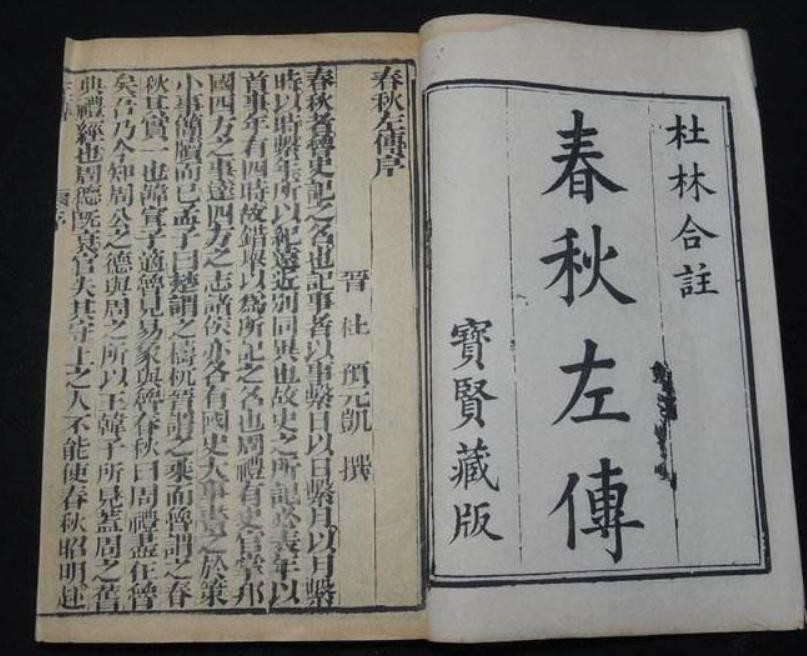 杜林合註
春秋左傳
寶賢藏版
春秋左傳序
晉杜預元凱撰
春秋者魯史記之名也記事者以事繫日以日繫月以月繫
時以時繫年所以紀遠近別同異也故史之所記必表年以
首事年有四時故錯舉以爲所記之名也周禮有史官掌邦
國四方之事達四方之志諸侯亦各有國史大事書之於策
小事簡牘而已孟子曰楚謂之檮杌晉謂之乘而魯謂之春
秋其實一也韓宣子適魯見易象與魯春秋曰周禮盡在魯
矣吾乃今知周公之德與周之所以王韓子所見蓋周之舊
典禮經也周德既衰官失其守上之人不能使春秋昭明赴